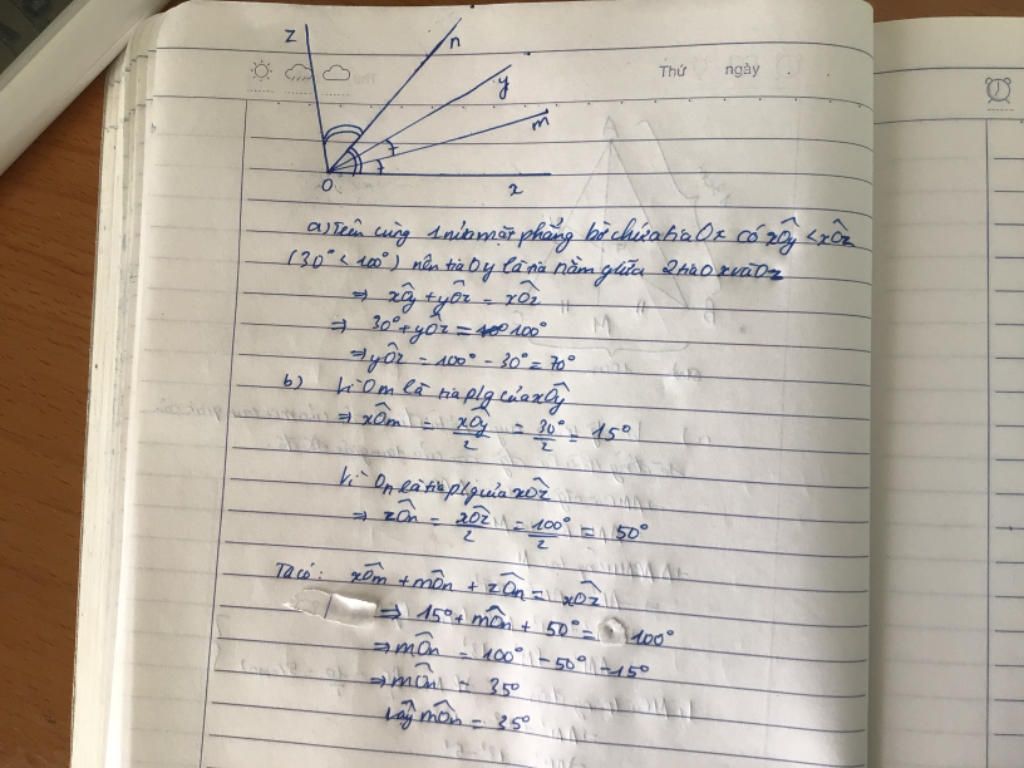 z
n
y
m
O
x
Thứ ngày
a) Trên cùng 1 nửa mặt phẳng bờ chứa tia Ox có xÔy < xÔz
(30° < 100°) nên tia Oy là tia nằm giữa 2 tia Ox và Oz
⇒ xÔy + yÔz = xÔz
⇒ 30° + yÔz = 100°
⇒ yÔz = 100° - 30° = 70°
b) Vì Om là tia plg của xÔy
⇒ xÔm = xÔy/2 = 30°/2 = 15°
Vì On là tia plg của xÔz
⇒ zÔn = xÔz/2 = 100°/2 = 50°
Ta có: xÔm + mÔn + zÔn = xÔz
⇒ 15° + mÔn + 50° = 100°
⇒ mÔn = 100° - 50° - 15°
⇒ mÔn = 35°
Vậy mÔn = 35°